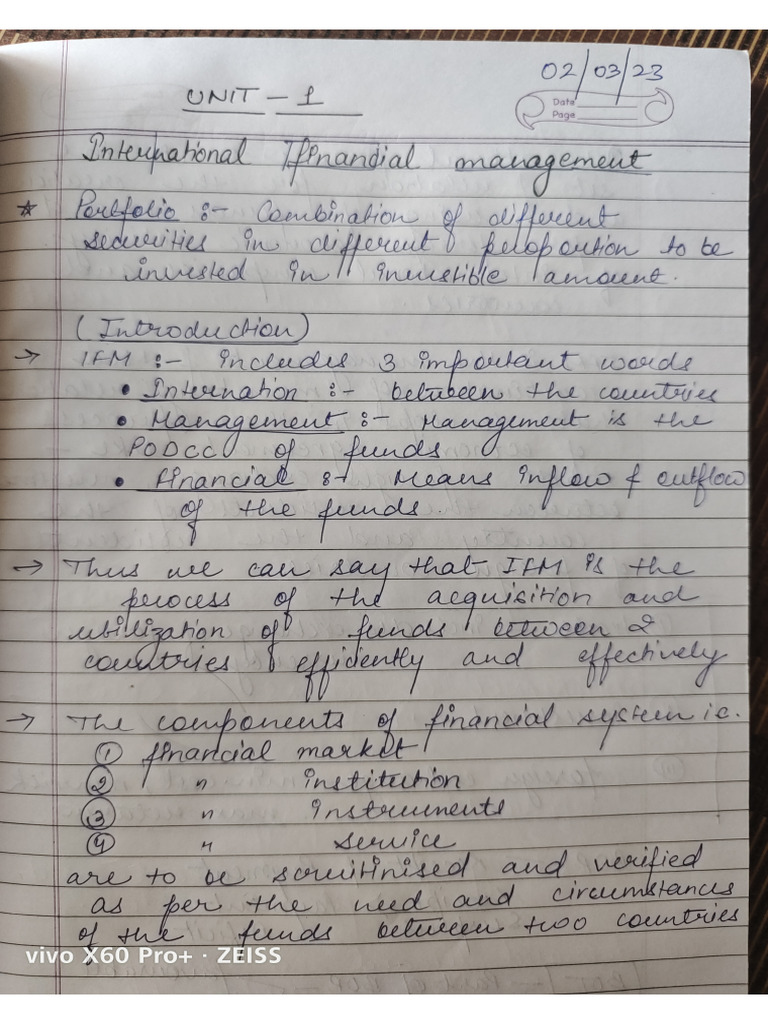 02/03/23
UNIT - 1
Date
Page
International financial management
☆ Portfolio :- Combination of different
securities in different peloportion to be
invested in investible amount.
(Introduction)
→ IFM :- includes 3 important words
• Internation :- between the countries
• Management :- Management is the
PODCC of funds
• financial :- Means inflow & outflow
of the funds.
→ Thus we can say that IFM is the
process of the acquisition and
utilization of funds between 2
countries efficiently and effectively
→ The components of financial system i.e.
① financial market
② " institution
③ " instruments
④ " service
are to be scruitinised and verified
as per the need and circumstances
of the funds between two countries
vivo X60 Pro+ · ZEISS